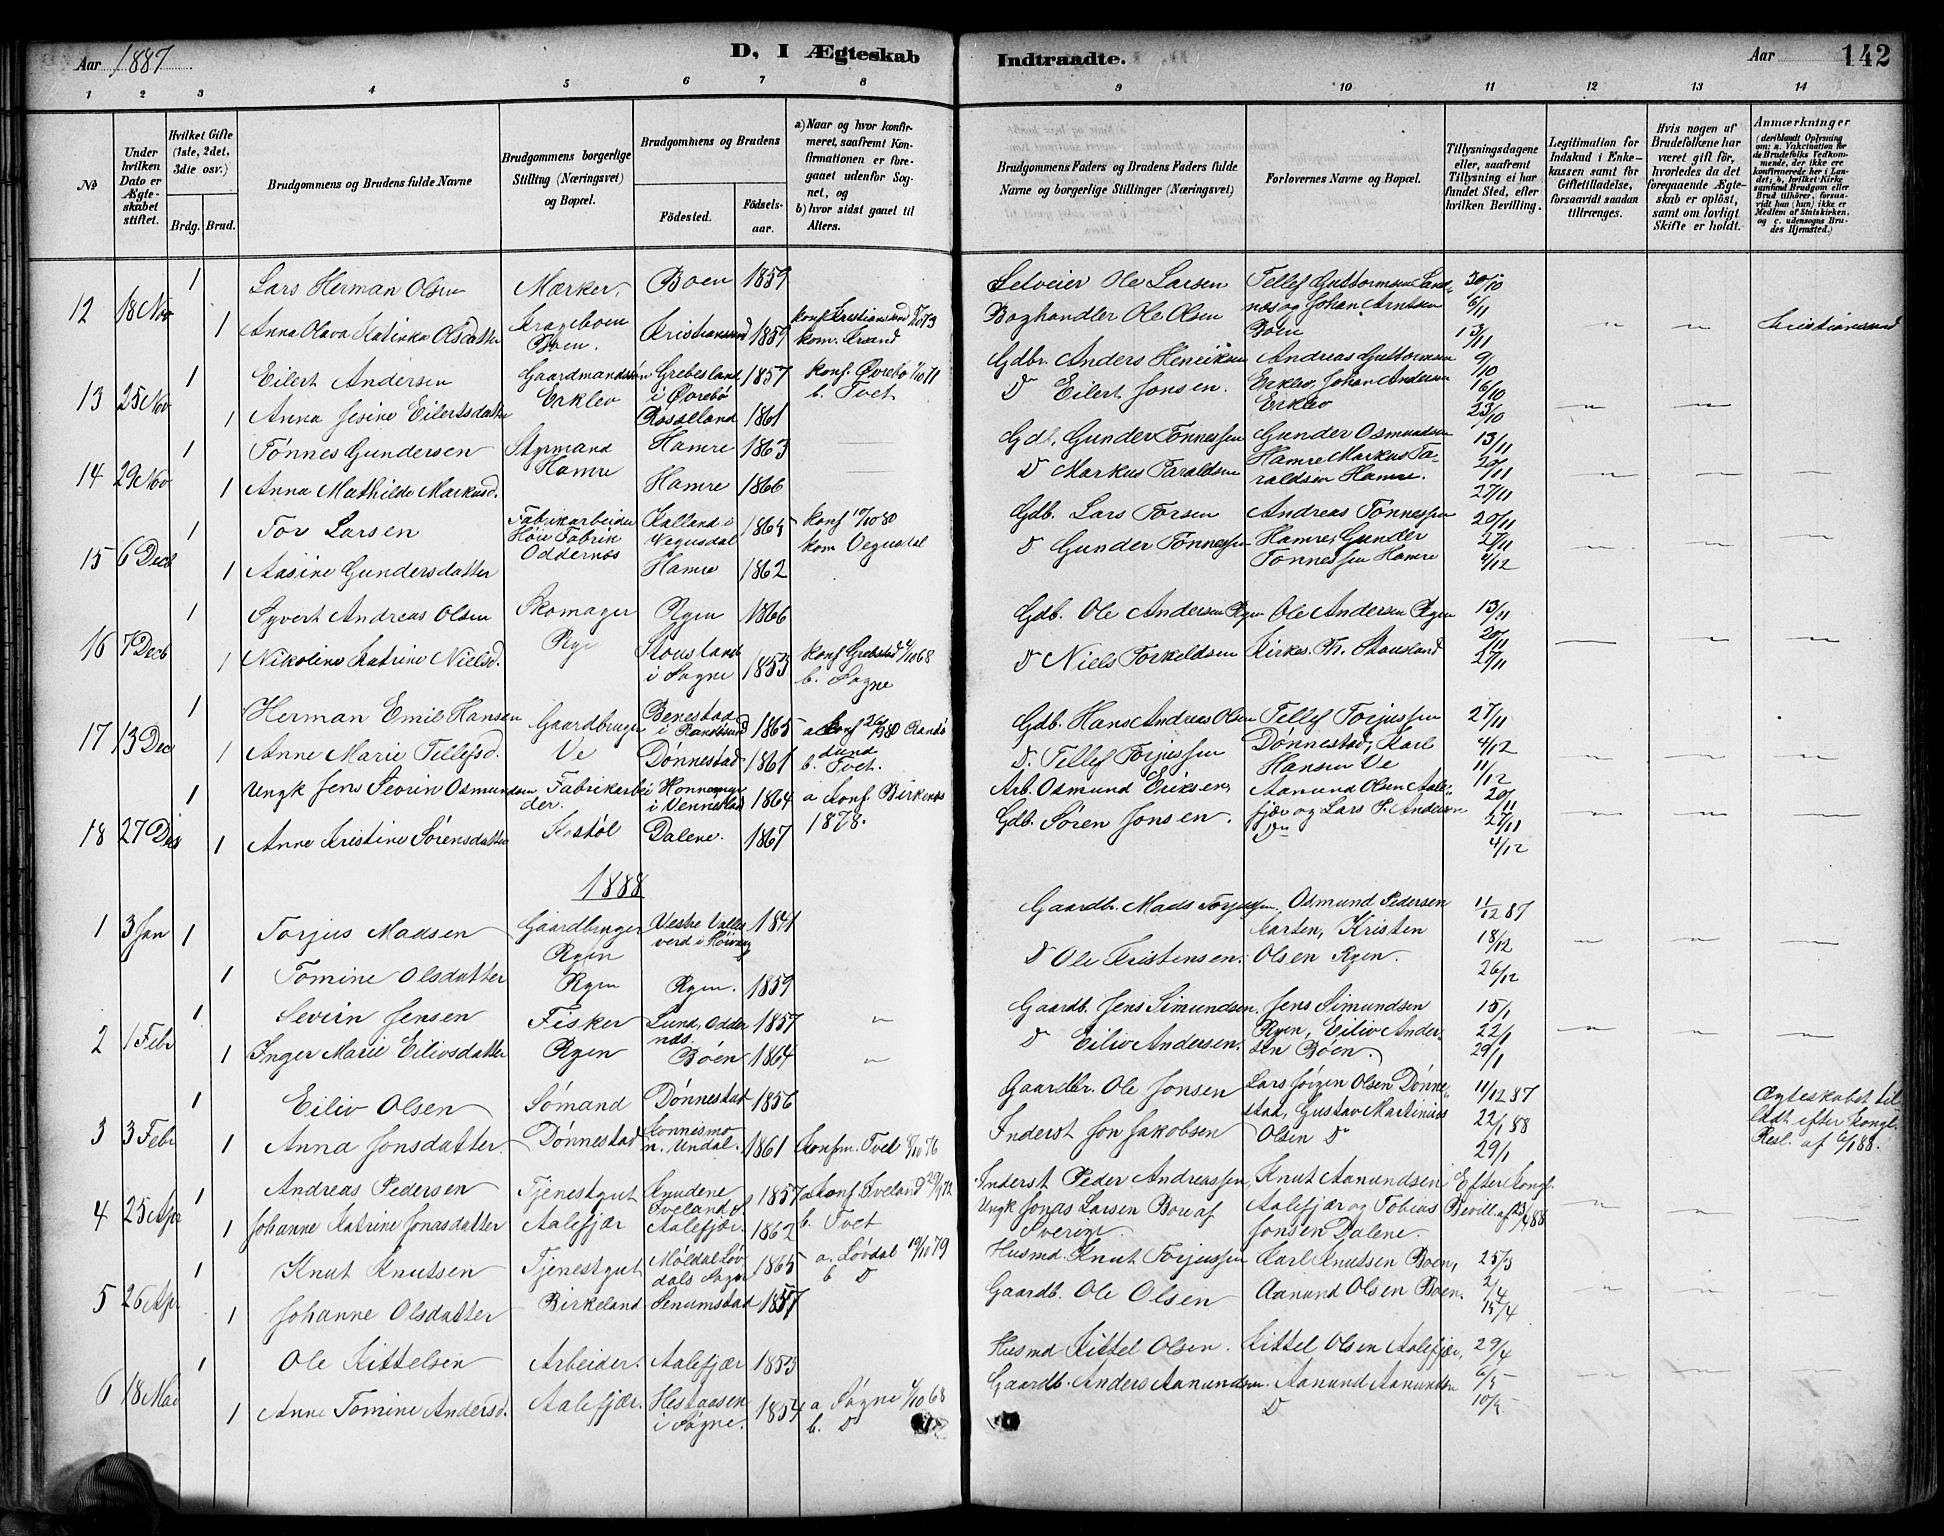 Aar 1887 D, I Ægteskab Indtraadte. Aar 142
1 2 3 4 5 6 7 8 9 10 11 12 13 14
No
Under hvilken Dato er Ægteskabet stiftet.
Hvilket Gifte (1ste, 2det, 3die osv.)
Brdg. Brud.
Brudgommens og Brudens fulde Navne
Brudgommens borgerlige Stilling (Næringsvei) og Bopæl.
Brudgommens og Brudens
Fødested. Fødselsaar.
a) Naar og hvor konfirmeret, saafremt Konfirmationen er foregaaet udenfor Sognet, og
b) hvor sidst gaaet til Alters.
Brudgommens Faders og Brudens Faders fulde Navne og borgerlige Stillinger (Næringsvei)
Forlovernes Navne og Bopæl.
Tillysningsdagene eller, saafremt Tillysning ei har fundet Sted, efter hvilken Bevilling.
Legitimation for Indskud i Enkekassen samt for Giftetilladelse, forsaavidt saadan tiltrænges.
Hvis nogen af Brudefolkene har været gift før, hvorledes da det foregaaende Ægteskab er opløst, samt om lovligt Skifte er holdt.
Anmærkninger
(deriblandt Oplysning om: a. Vakcination for de Brudefolks Vedkommende, der ikke ere konfirmerede her i Landet; b. hvilket Kirkesamfund Brudgom eller Brud tilhører, forsaavidt han (hun) ikke er Medlem af Statskirken, og c. udensogns Brudes Hjemsted.)
1 Lars Herman Olsen Mærker, Boen 1859 Selveier Ole Larsen Tellef Guttormsen Land- 30/10
12 18 Nov nes og Johan Arntsen 6/11
1 Anna Olava Katinka Olsdatter Krageboen Boen. Kristianssand 1859 konf Kristianssand 73 kom. Krsand Boghandler Ole Olsen Boen 13/11 " " Kristianssand
1 Eilert Andersen Gaardmandssøn Grebesland i Øvrebø 1857 konf. Øvrebø 71 b. Tvet. Gdbr. Anders Henriksen Andreas Guttormsen 9/10
13 25 Nov Erklev D Eilert Jonsen. Erklev, Johan Andersen 16/10
1 Anna Jesine Eilertsdatter Rosseland 1861 Erklev 23/10 " "
1 Tønnes Gundersen Styrmand Hamre 1863 Gdb. Gunder Tønnessen Gunder Osmundsen 13/11
14 29 Nov Hamre D Markus Taraldsen Hamre Markus Ta- 20/11 " " "
1 Anna Mathilde Markusd. Hamre 1866 raldsen Hamre. 27/11
1 Tor Larsen Fabrikarbeider Kalland i Vegusdal 1865 konf 10/10 80 Gdb. Lars Torsen Andreas Tønnessen 20/11
15 6 Decb Høie Fabrik Oddernes kom Vegusdal D Gunder Tønnessen Hamre, Gunder 27/11 " " "
1 Aasine Gundersdatter Hamre 1862 Tønnessen Hamre 4/12
1 Syvert Andreas Olsen Skomager Ryen 1866 Gdb. Ole Andersen Ryen Ole Andersen Ryen 13/11
16 7 Decb Ryen 20/11
1 Nikoline Katrine Nielsd. Stousland i Søgne 1853 konf 68 b. Søgne D Niels Torkeldsen Kirkes. Stausland 27/11 " " "
1 Herman Emil Hansen Gaardbruger Benestad i Randøsund 1865 a konf 80 Randøsund Gdb. Hans Andreas Olsen Tellef Torjussen 27/11
17 13 Dec Ve b. Tvet. Dønnestad, Karl 4/12
1 Anne Marie Tellefsd. Dønnestad 1861 D. Tellef Torjussen Hansen Ve 11/12 " " "
1 Ungk Jens Severin Osmundsen, Fabrikarbeider. i Vennesland 1864 a konf. Birkenes 1878. Arb. Osmund Eriksen, Aanund Olsen Aale- 20/11
18 27 Dec Kostøl fjær og Lars P. Andersen 27/11
1 Anne Kristine Sørensdatter Dalene. 1867 Gdb. Søren Jonsen. D 4/12 " " "
1888
1 3 Jan 1 Torjus Madsen Gaardbruger Ryen Vestre Vallesverd i Høivaag 1841 Gaardb. Mads Torjussen, Osmund Pedersen 11/12 87
Aarten, Kristen 18/12 " " "
1 Tomine Olsdatter Ryen Ryen. 1859 D Ole Kristensen. Olsen Ryen. 26/12
1 Severin Jensen Fisker Lund, Oddernes. 1857 " Gaardb. Jens Simundsen, Jens Simundsen 15/1
2 1 Febr Ryen, Eiliv Ander- 22/1 " " "
1 Inger Marie Eilivsdatter Ryen Bøen 1864 " D Eiliv Andersen. sen Bøen. 29/1
1 Eiliv Olsen Sømand Dønnestad 1856 Gaardbr. Ole Jonsen Lars Jörgen Olsen Dønne- 11/12 87 Ægteskabet til-
3 3 Febr stad, Gustav Martinius 22/1 88 ladt efter Kongl.
1 Anna Jonsdatter Dønnestad Konnismo n. Undal. 1861 Konfm. Tved 8/10 76 Inderst Jon Jakobsen Olsen D 29/1 Resl. af 6/1 88.
1 Andreas Pedersen Tjenestgut Knudene Iveland 1857 a Konf. Iveland 29/9 72 Inderst Peder Andreassen, Knut Aanundsen Efter Kongl.
4 25 Apr b. Tvet Aalefjær og Tobias Bevill. af 23/4 88 " " "
1 Johanne Katrine Jonasdatter Aalefjær Aalefjær. 1862 Ungk Jonas Larsen Bou af Sverige. Jonsen Dalene.
1 Knut Knutsen Tjenestgut Møldal Løvdals Sogn 1865 a. Løvdal 19/10 79 b D Husmd. Knut Torjussen Karl Knutsen Boen, 25/3
5 26 Apr Aanund Olsen Boen. 2/4 " " "
1 Johanne Olsdatter Birkeland Senumstad 1857 Gaardb. Ole Olsen 15/4
1 Ole Kittelsen Arbeider. Aalefjær 1853 Husmd Kittel Olsen. Kittel Olsen Aalefjær, 29/4
6 18 Mai Aanund Aanundsen 6/5 " " "
1 Anne Tomine Andersd. Aalefjær. Hestaasen i Søgne. 1854 a Søgne 68 b. D Gaardb. Anders Aanundsen. D 10/5